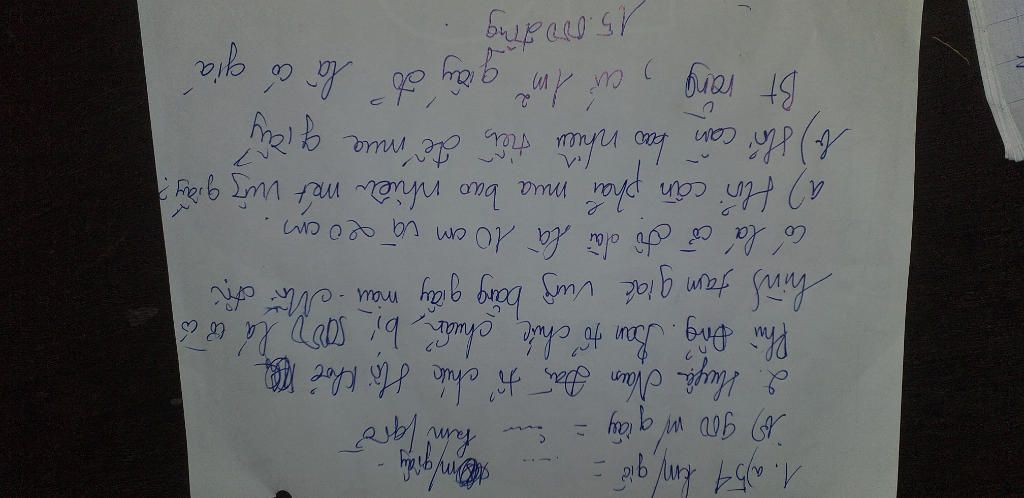 1. a) 54 km/giờ = ... m/giây
b) 900 m/giây = ... km/giờ
2. Huyện Nam Đàn tổ chức Hội khoẻ
Phù Đổng. Ban tổ chức chuẩn bị 5000 lá cờ có
hình tam giác vuông bằng giấy màu.
có là cờ dài là 10 cm và 20 cm.
a) Hỏi cần phải mua bao nhiêu mét vuông giấy?
b) Hỏi cần bao nhiêu tiền để mua giấy
Bt rằng, cứ 1m² giấy đó là có giá
15.000 đồng.